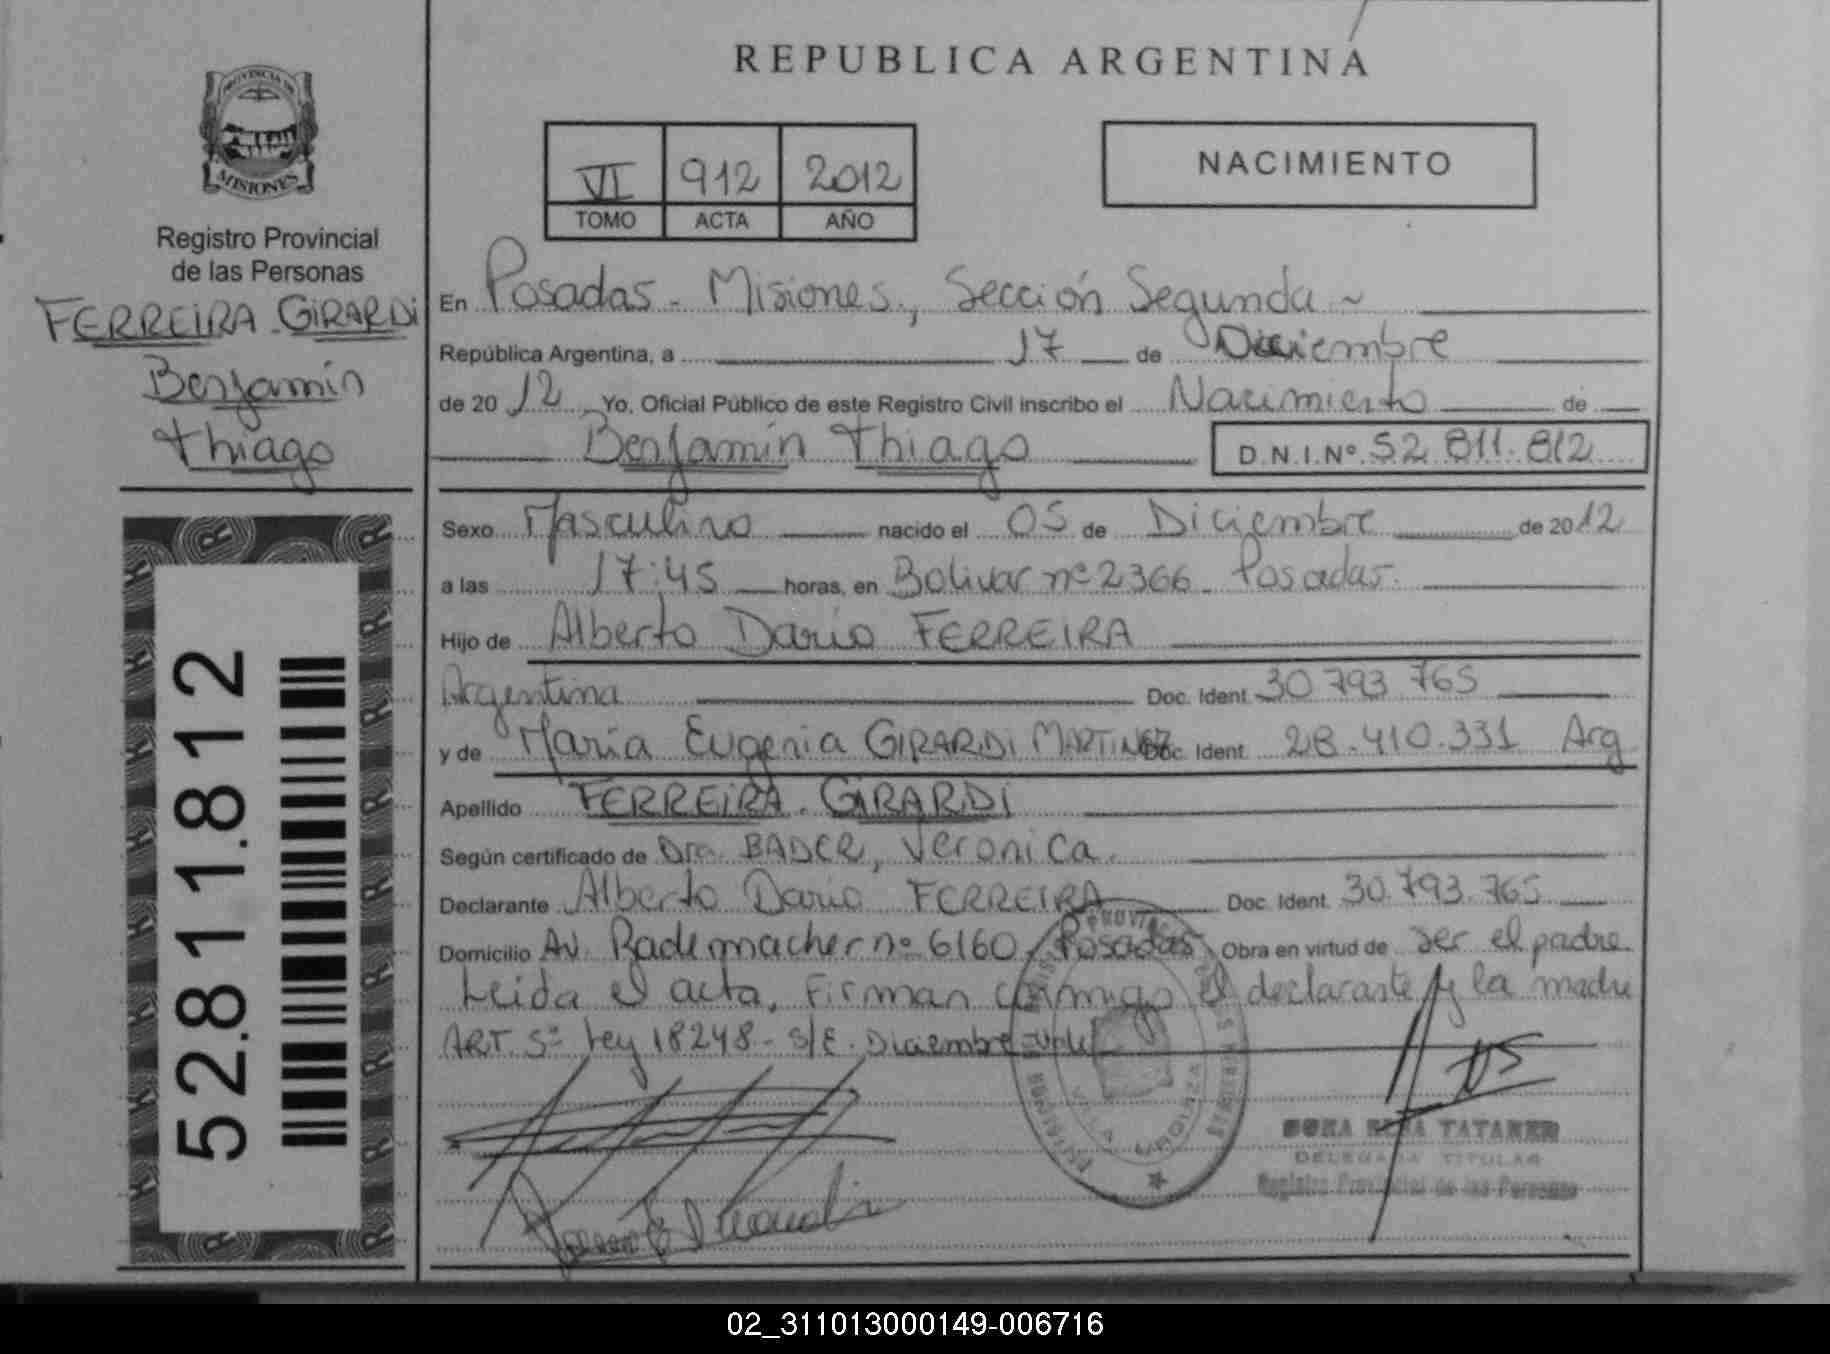 REPUBLICA ARGENTINA
PROVINCIA DE
MISIONES
Registro Provincial
de las Personas
FERREIRA GIRARDI
Benjamín
Thiago
52.811.812
VI 912 2012
TOMO ACTA AÑO
NACIMIENTO
En Posadas - Misiones, Sección Segunda
República Argentina, a 17 de Diciembre
de 2012 Yo, Oficial Público de este Registro Civil inscribo el Nacimiento de
Benjamín Thiago D.N.I.Nº 52.811.812
Sexo Masculino nacido el 05 de Diciembre de 2012
a las 17:45 horas, en Bolivar nº 2366 Posadas.
Hijo de Alberto Dario FERREIRA
Argentina Doc. Ident. 30.793.765
y de María Eugenia GIRARDI MARTINEZ Doc. Ident. 28.410.331 Arg
Apellido FERREIRA GIRARDI
Según certificado de Dra. BADER, Veronica.
Declarante Alberto Dario FERREIRA Doc. Ident. 30.793.765
Domicilio Av. Rademacher nº 6160 Posadas Obra en virtud de ser el padre
Leida el acta, firman conmigo el declarante y la madre
ART. 5º Ley 18248 - S/E. Diciembre vale
VILLA URQUIZA
TATAREN
DELEGADA TITULAR
Registro Provincial de las Personas
02_311013000149-006716